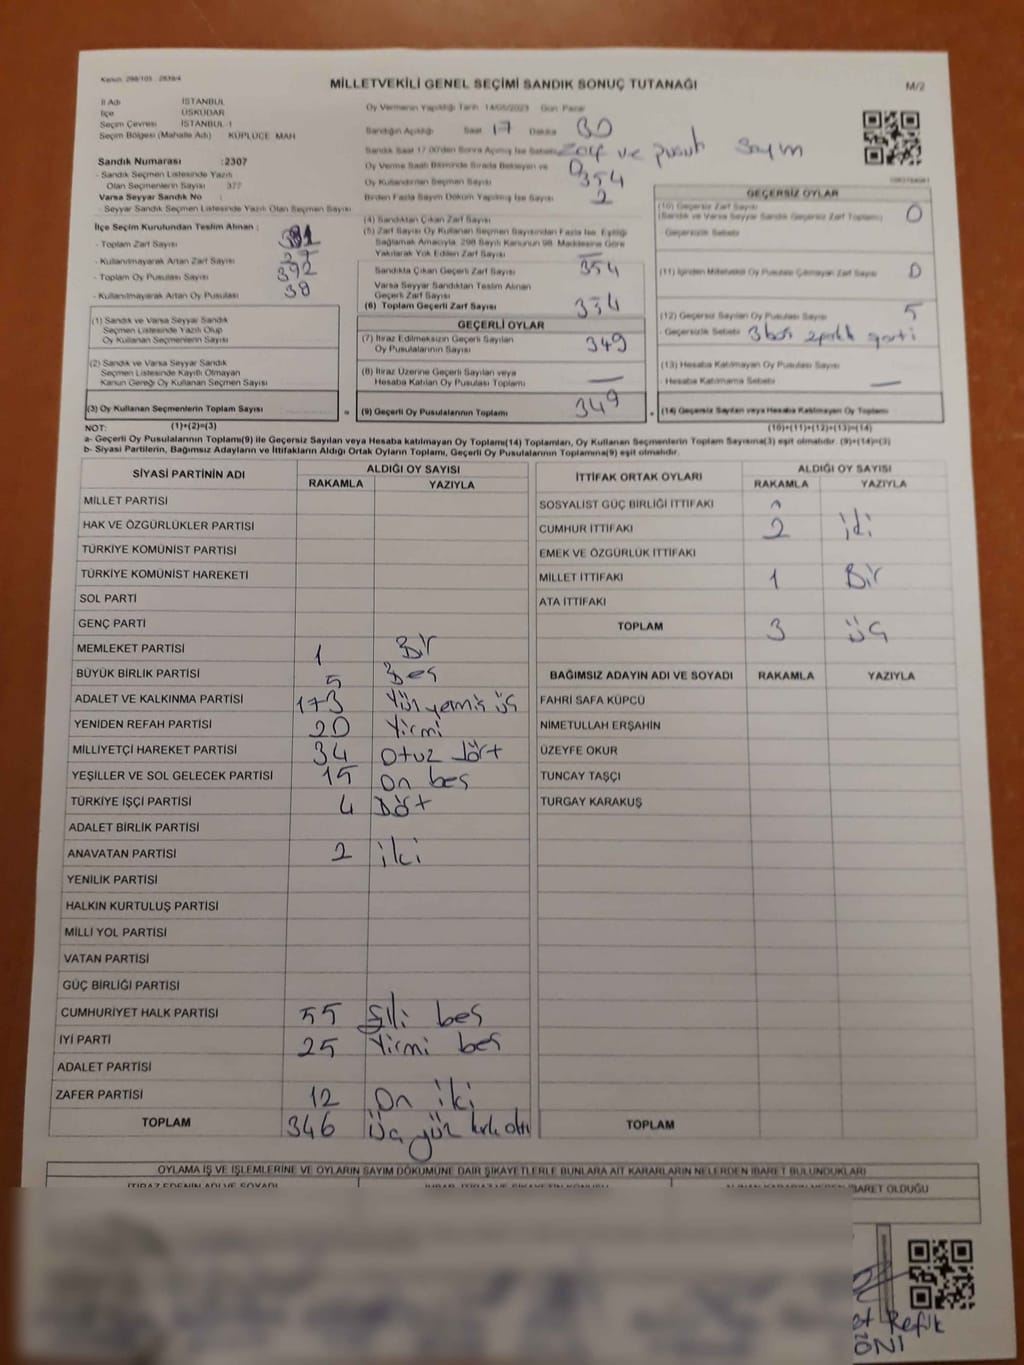 Kanun: 298/105 - 2839/4
MİLLETVEKİLİ GENEL SEÇİMİ SANDIK SONUÇ TUTANAĞI
M/2
İl Adı İSTANBUL
İlçe ÜSKÜDAR
Seçim Çevresi İSTANBUL 1
Seçim Bölgesi (Mahalle Adı) KÜPLÜCE MAH
Sandık Numarası :2307
- Sandık Seçmen Listesinde Yazılı
Olan Seçmenlerin Sayısı 377
Varsa Seyyar Sandık No :
- Seyyar Sandık Seçmen Listesinde Yazılı Olan Seçmen Sayısı
İlçe Seçim Kurulundan Teslim Alınan :
- Toplam Zarf Sayısı
- Kullanılmayarak Artan Zarf Sayısı
- Toplam Oy Pusulası Sayısı 392
- Kullanılmayarak Artan Oy Pusulası 38
(1) Sandık ve Varsa Seyyar Sandık
Seçmen Listesinde Yazılı Olup
Oy Kullanan Seçmenlerin Sayısı
(2) Sandık ve Varsa Seyyar Sandık
Seçmen Listesinde Kayıtlı Olmayan
Kanun Gereği Oy Kullanan Seçmen Sayısı
(3) Oy Kullanan Seçmenlerin Toplam Sayısı
(1)+(2)=(3)
Oy Vermenin Yapıldığı Tarih 14/05/2023 Gün Pazar
Sandığın Açıldığı Saat 17 Dakika 30
Sandık Saat 17:00'den Sonra Açılmış İse Sebebi Zarf ve pusula sayım
Oy Verme Saati Bitiminde Sırada Bekleyen ve 0
Oy Kullandırılan Seçmen Sayısı 354
Birden Fazla Sayım Döküm Yapılmış İse Sayısı 2
(4) Sandıktan Çıkan Zarf Sayısı
(5) Zarf Sayısı Oy Kullanan Seçmen Sayısından Fazla İse, Eşitliği
Sağlamak Amacıyla, 298 Sayılı Kanunun 98. Maddesine Göre
Yakılarak Yok Edilen Zarf Sayısı —
Sandıkta Çıkan Geçerli Zarf Sayısı 354
Varsa Seyyar Sandıktan Teslim Alınan
Geçerli Zarf Sayısı
(6) Toplam Geçerli Zarf Sayısı 354
GEÇERLİ OYLAR
(7) İtiraz Edilmeksizin Geçerli Sayılan
Oy Pusulalarının Sayısı 349
(8) İtiraz Üzerine Geçerli Sayılan veya
Hesaba Katılan Oy Pusulası Toplamı —
= (9) Geçerli Oy Pusulalarının Toplamı 349
GEÇERSİZ OYLAR
(10) Geçersiz Zarf Sayısı
(Sandık ve Varsa Seyyar Sandık Geçersiz Zarf Toplamı) 0
- Geçersizlik Sebebi
(11) İçinden Milletvekili Oy Pusulası Çıkmayan Zarf Sayısı 0
(12) Geçersiz Sayılan Oy Pusulası Sayısı 5
- Geçersizlik Sebebi 3 boş 2 parti
(13) Hesaba Katılmayan Oy Pusulası Sayısı
- Hesaba Katılmama Sebebi —
+ (14) Geçersiz Sayılan veya Hesaba Katılmayan Oy Toplamı
(10)+(11)+(12)+(13)=(14)
NOT:
a- Geçerli Oy Pusulalarının Toplamı(9) ile Geçersiz Sayılan veya Hesaba katılmayan Oy Toplamı(14) Toplamları, Oy Kullanan Seçmenlerin Toplam Sayısına(3) eşit olmalıdır. (9)+(14)=(3)
b- Siyasi Partilerin, Bağımsız Adayların ve İttifakların Aldığı Ortak Oyların Toplamı, Geçerli Oy Pusulalarının Toplamına(9) eşit olmalıdır.
SİYASİ PARTİNİN ADI ALDIĞI OY SAYISI
RAKAMLA YAZIYLA
MİLLET PARTİSİ
HAK VE ÖZGÜRLÜKLER PARTİSİ
TÜRKİYE KOMÜNİST PARTİSİ
TÜRKİYE KOMÜNİST HAREKETİ
SOL PARTİ
GENÇ PARTİ
MEMLEKET PARTİSİ 1 Bir
BÜYÜK BİRLİK PARTİSİ 5 Beş
ADALET VE KALKINMA PARTİSİ 173 Yüz yetmiş üç
YENİDEN REFAH PARTİSİ 20 Yirmi
MİLLİYETÇİ HAREKET PARTİSİ 34 Otuz dört
YEŞİLLER VE SOL GELECEK PARTİSİ 15 On beş
TÜRKİYE İŞÇİ PARTİSİ 4 Dört
ADALET BİRLİK PARTİSİ
ANAVATAN PARTİSİ 2 iki
YENİLİK PARTİSİ
HALKIN KURTULUŞ PARTİSİ
MİLLİ YOL PARTİSİ
VATAN PARTİSİ
GÜÇ BİRLİĞİ PARTİSİ
CUMHURİYET HALK PARTİSİ 55 Elli beş
İYİ PARTİ 25 Yirmi beş
ADALET PARTİSİ
ZAFER PARTİSİ 12 On iki
TOPLAM 346 üç yüz kırk altı
İTTİFAK ORTAK OYLARI ALDIĞI OY SAYISI
RAKAMLA YAZIYLA
SOSYALİST GÜÇ BİRLİĞİ İTTİFAKI
CUMHUR İTTİFAKI 2 iki
EMEK VE ÖZGÜRLÜK İTTİFAKI
MİLLET İTTİFAKI 1 Bir
ATA İTTİFAKI
TOPLAM 3 üç
BAĞIMSIZ ADAYIN ADI VE SOYADI RAKAMLA YAZIYLA
FAHRİ SAFA KÜPCÜ
NİMETULLAH ERŞAHİN
ÜZEYFE OKUR
TUNCAY TAŞÇI
TURGAY KARAKUŞ
TOPLAM
OYLAMA İŞ VE İŞLEMLERİNE VE OYLARIN SAYIM DÖKÜMÜNE DAİR ŞİKAYETLERLE BUNLARA AİT KARARLARIN NELERDEN İBARET BULUNDUKLARI
İTİRAZ EDENİN ADI VE SOYADI
İBARET OLDUĞU
Refik